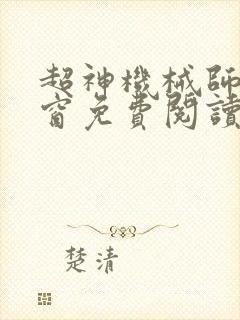 超神機械師
窗免費閱讀
楚清